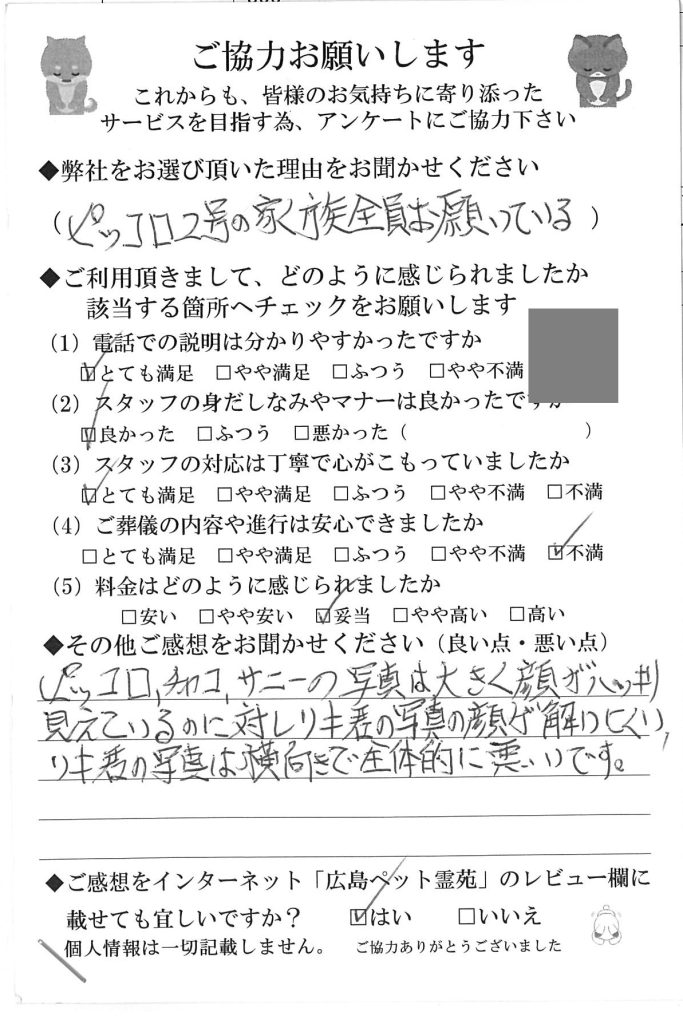 ご協力お願いします
これからも、皆様のお気持ちに寄り添った
サービスを目指す為、アンケートにご協力下さい
◆弊社をお選び頂いた理由をお聞かせください
（ピッコロ2号の家族全員お願いている）
◆ご利用頂きまして、どのように感じられましたか
該当する箇所へチェックをお願いします
（1）電話での説明は分かりやすかったですか
☑とても満足 □やや満足 □ふつう □やや不満
（2）スタッフの身だしなみやマナーは良かったですか
☑良かった □ふつう □悪かった（ ）
（3）スタッフの対応は丁寧で心がこもっていましたか
☑とても満足 □やや満足 □ふつう □やや不満 □不満
（4）ご葬儀の内容や進行は安心できましたか
□とても満足 □やや満足 □ふつう □やや不満 ☑不満
（5）料金はどのように感じられましたか
□安い □やや安い ☑妥当 □やや高い □高い
◆その他ご感想をお聞かせください（良い点・悪い点）
ピッコロ,チャコ,サニーの写真は大きく顔がハッキリ
見えているのに対しリキ君の写真の顔が解りにくい,
リキ君の写真は横向きで全体的に悪いです。
◆ご感想をインターネット「広島ペット霊苑」のレビュー欄に
載せても宜しいですか？ ☑はい □いいえ
個人情報は一切記載しません。 ご協力ありがとうございました